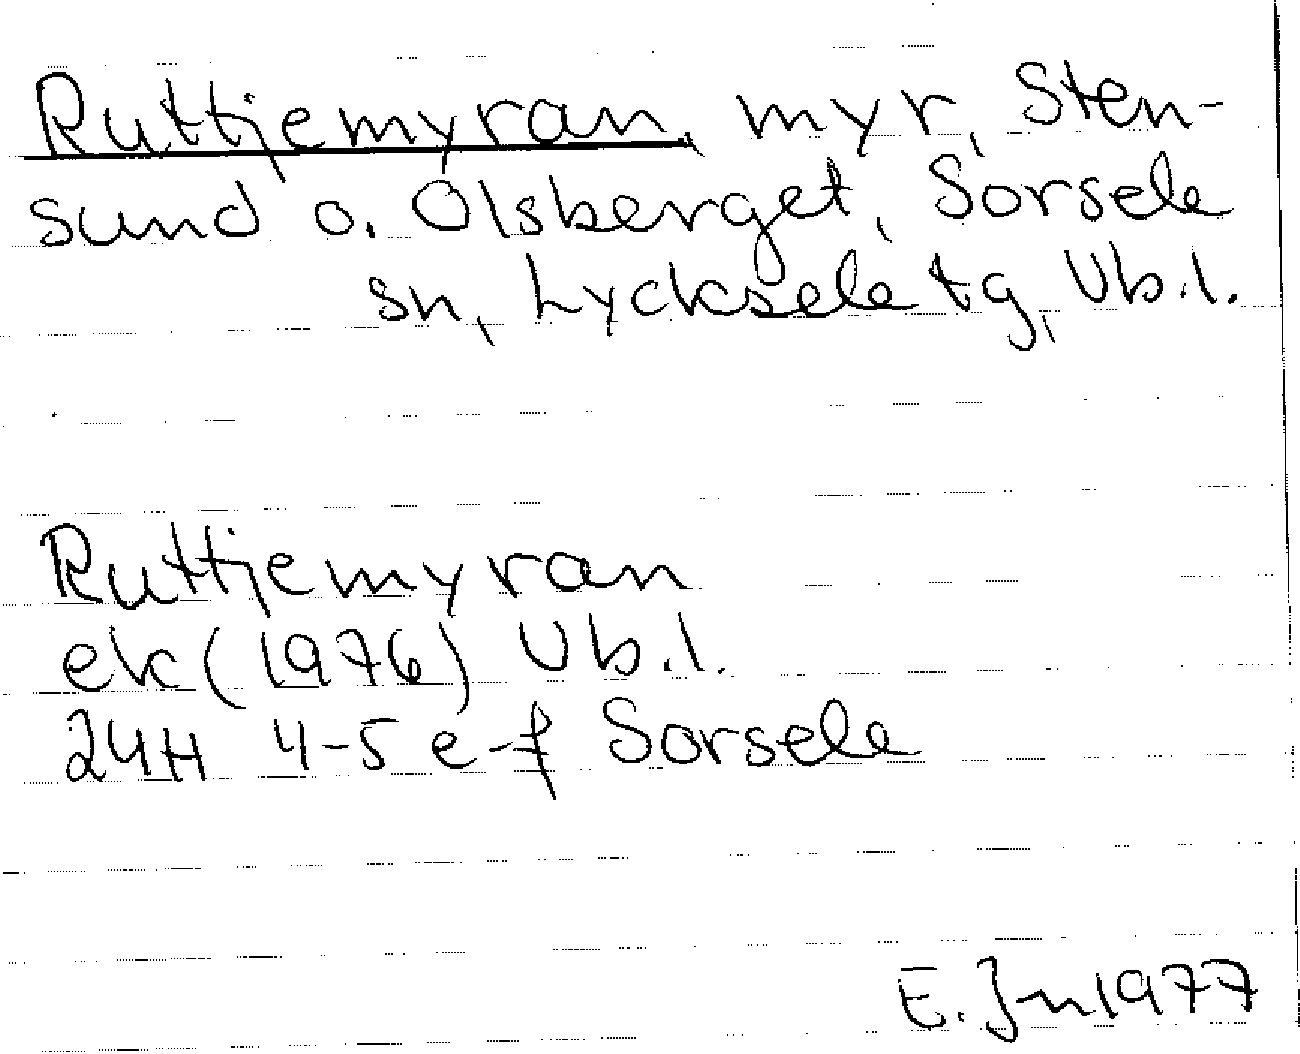 Ruttjemyran, myr, Sten-
sund o. Olsberget, Sorsele
sn, Lycksele tg, Vb.l.
Ruttjemyran
ek (1976) Vb.l.
24H 4-5 e-f Sorsele
E. Jn 1977